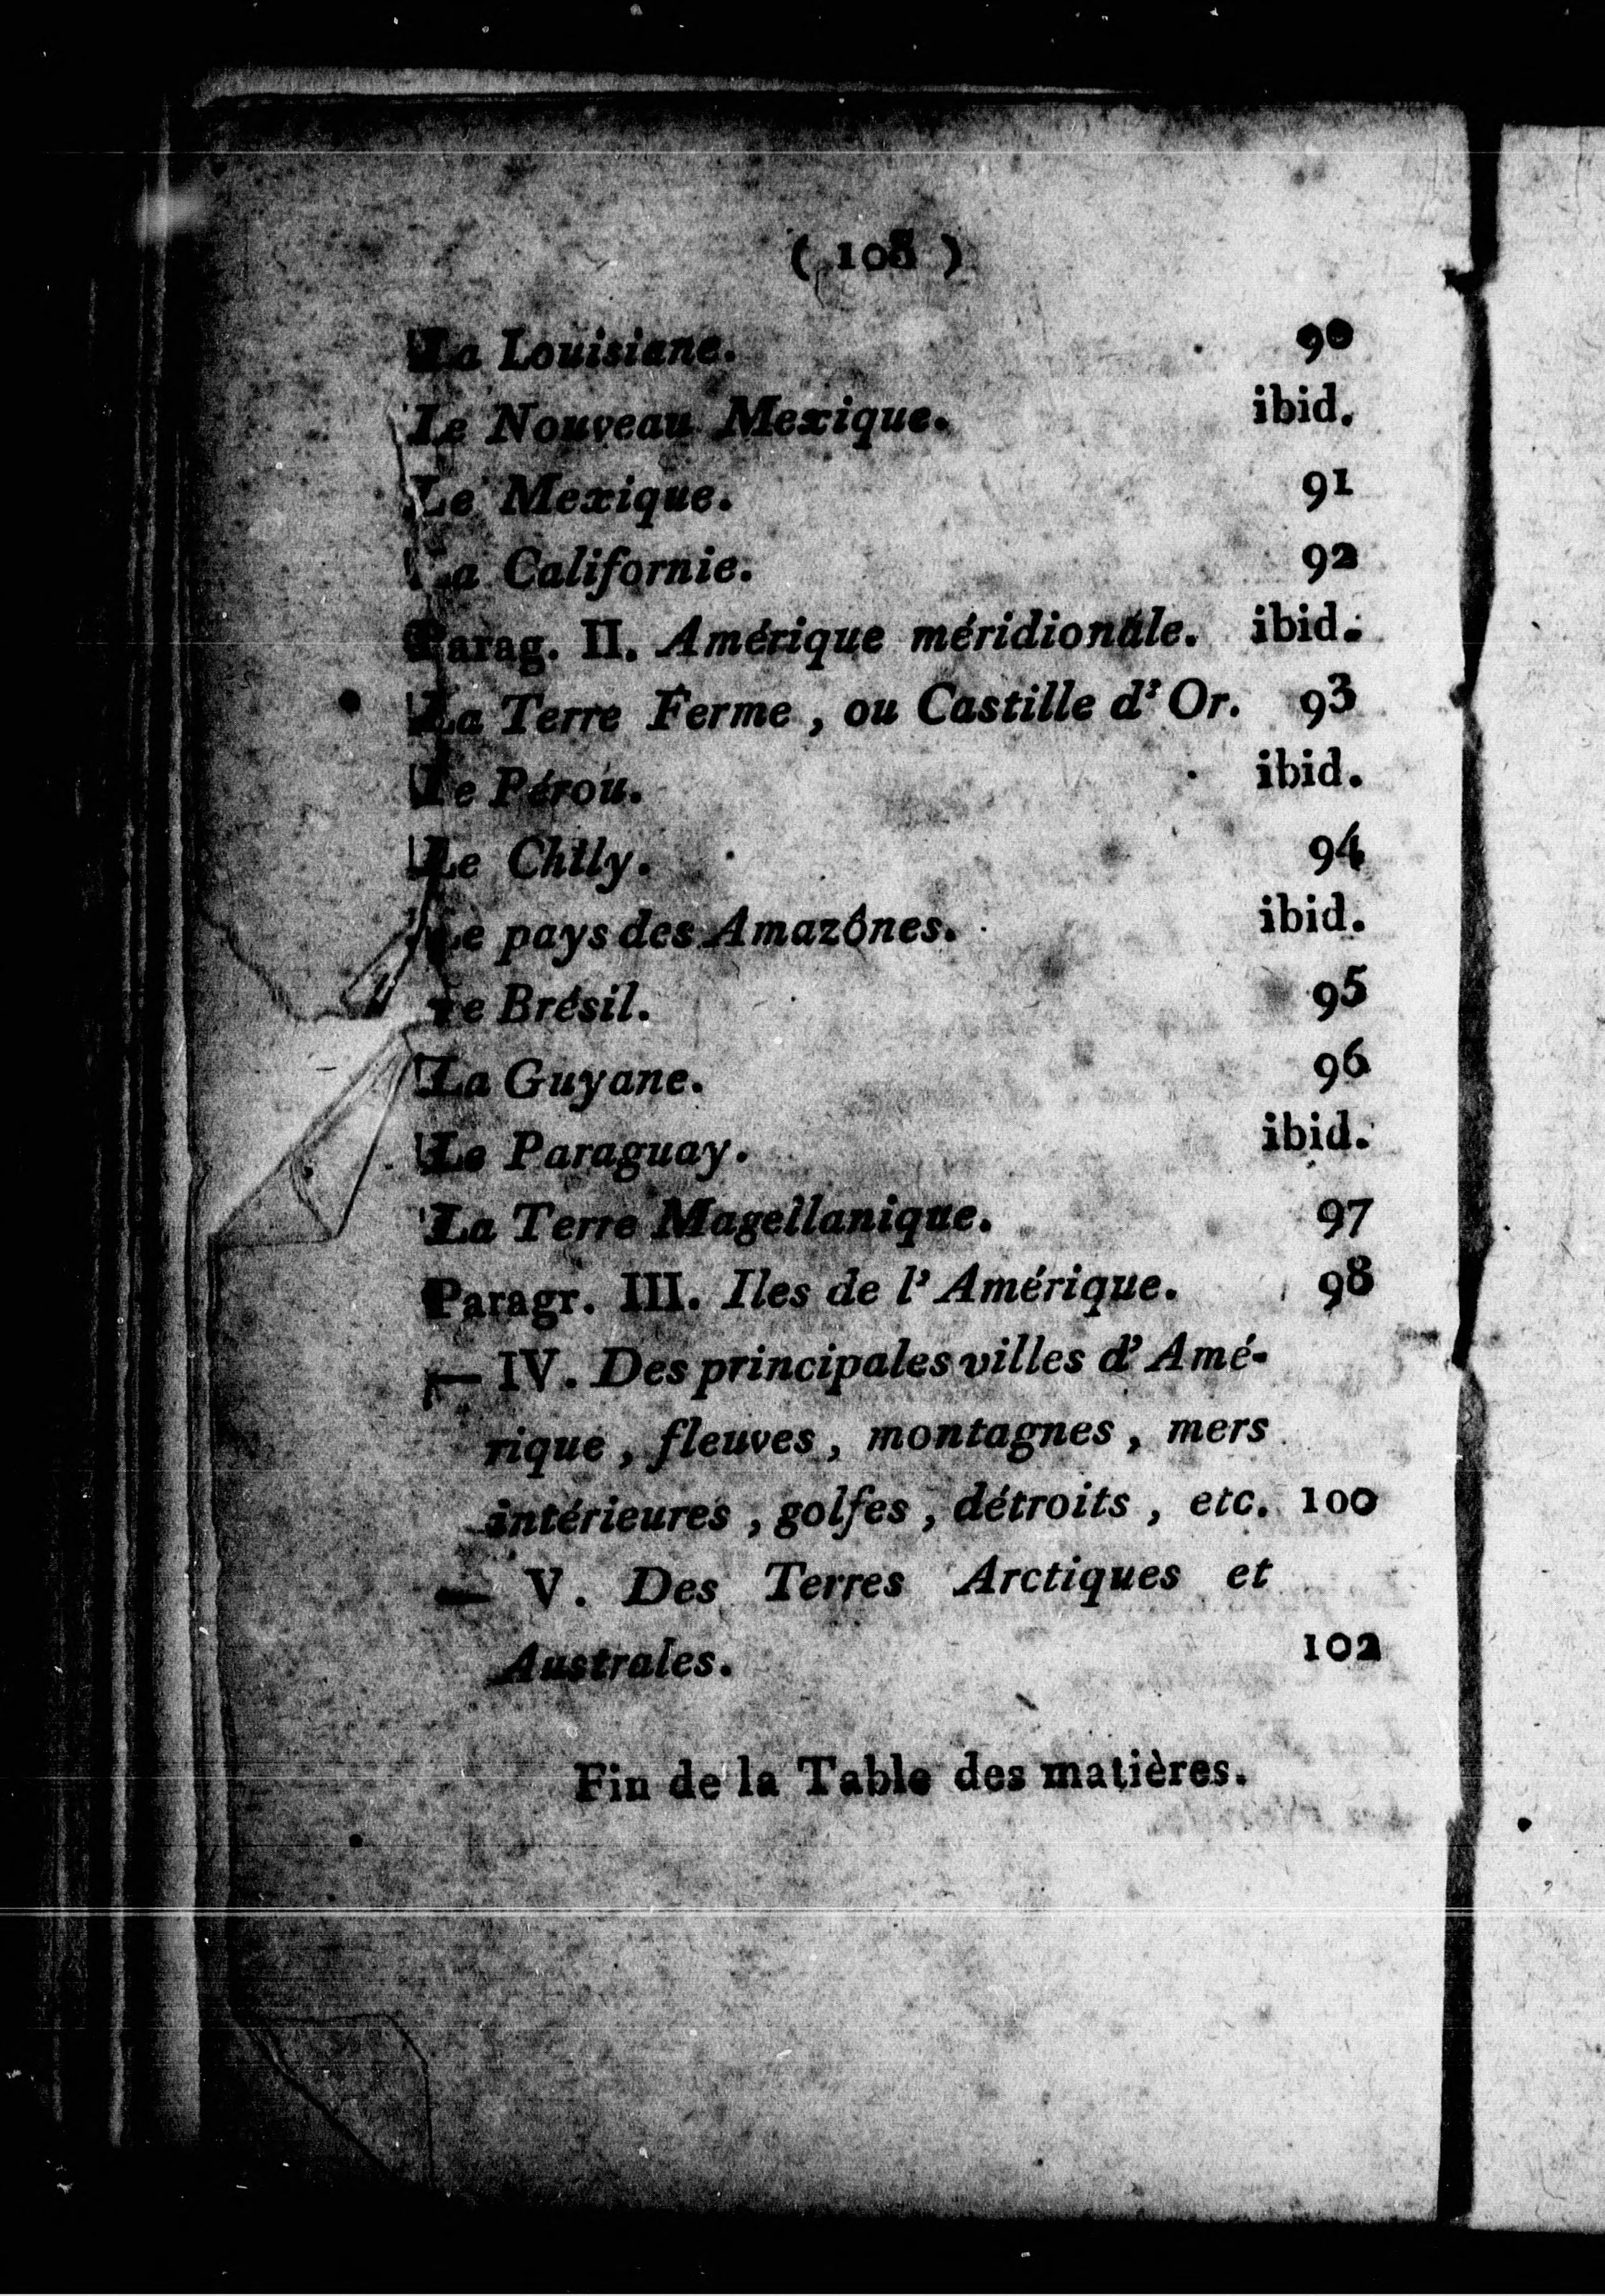 ( 108 )
La Louisiane. 90
Le Nouveau Mexique. ibid.
Le Mexique. 91
La Californie. 92
Parag. II. Amérique méridionale. ibid.
La Terre Ferme , ou Castille d'Or. 93
Le Pérou. ibid.
Le Chily. 94
Le pays des Amazônes. ibid.
Le Brésil. 95
La Guyane. 96
Le Paraguay. ibid.
La Terre Magellanique. 97
Paragr. III. Iles de l'Amérique. 98
— IV. Des principales villes d'Amé-
rique , fleuves , montagnes , mers
intérieures , golfes , détroits , etc. 100
— V. Des Terres Arctiques et
Australes. 102
Fin de la Table des matières.